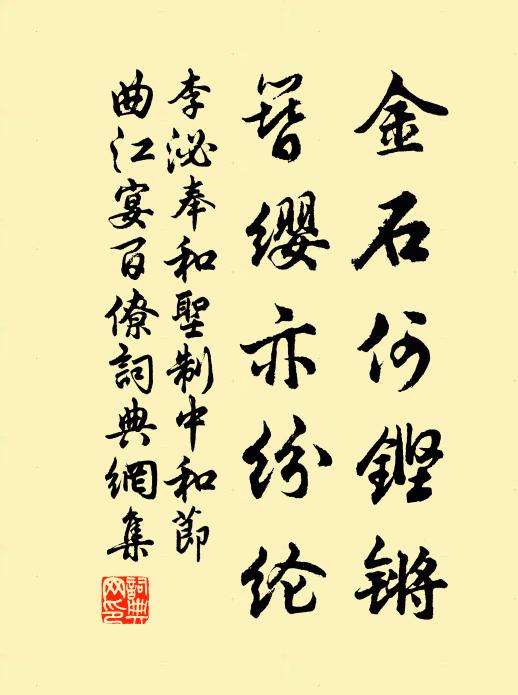 金石何鏗锵
簪缨亦纷纶
李泌奉和聖制中和節
曲江宴百僚詞典網集
詞典網印